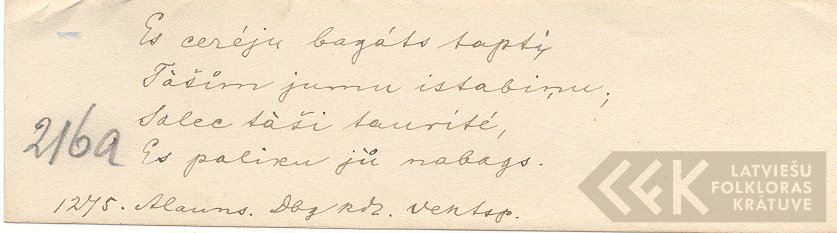 Es cerēju bagāts tapti,
Tāšim jumu istabiņu;
Salec tāši taurītē,
Es paliku jū nabags.
216a
1275. Alauns. Dbg kdz. Ventsp.
LATVIEŠU
FOLKLORAS
KRĀTUVE